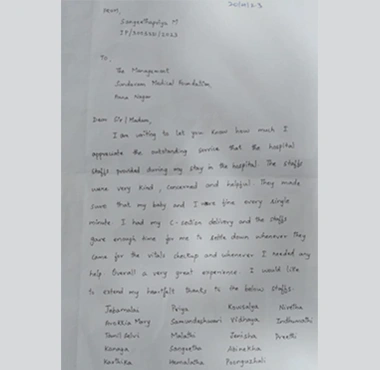 From,
Sangeethapriya M
To,
The Management
Sundaram Medical Foundation
Anna Nagar
Dear Sir/Madam,
I am writing to let you know how much I
appreciate the outstanding service that the hospital
staffs provided during my stay in the hospital. The staffs
were very kind, concerned and helpful. They made
sure that my baby and I were fine every single
minute. I had my C-section delivery and the staffs
gave enough time for me to settle down whenever they
came for the vitals checkup and whenever I needed any
help. Overall a very great experience. I would like
to extend my heartfelt thanks to the below staffs.
Jabamalai Priya Kousalya Nivetha
Arokkia Mary Samundeshwari Vidhaya Indhumathi
Tamil Selvi Malathi Jenisha Preethi
Kanaga Sangeetha Abinekha
Karthika Hemalatha Poongushali